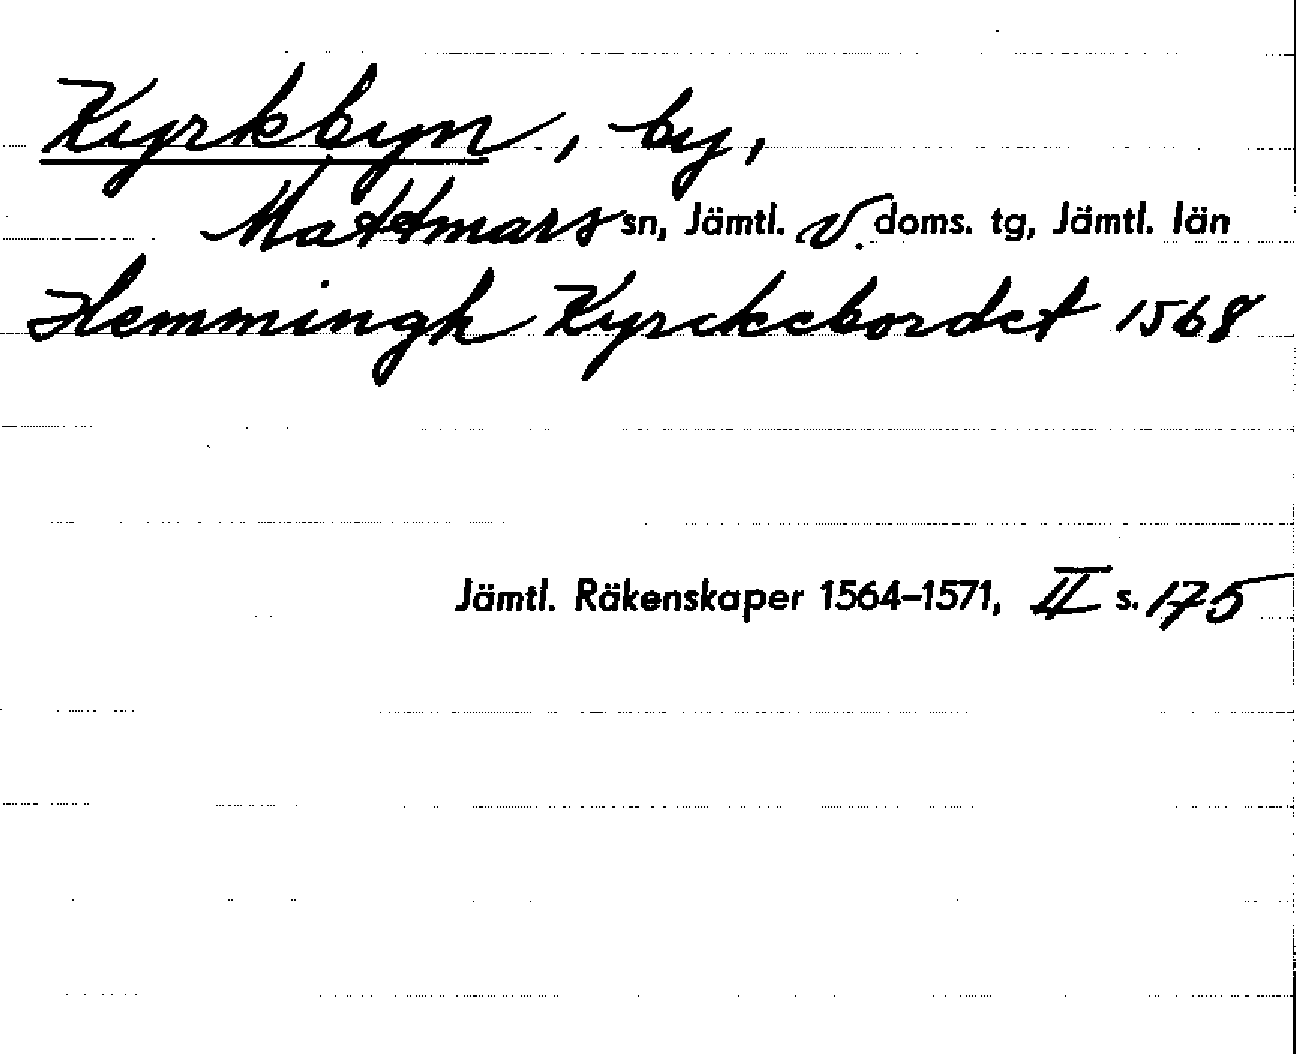 Kyrkbyn, by,
Mattmars sn, Jämtl. v. doms. tg, Jämtl. län
Hemmingh Kyrckebordet 1568
Jämtl. Räkenskaper 1564-1571, II s. 175